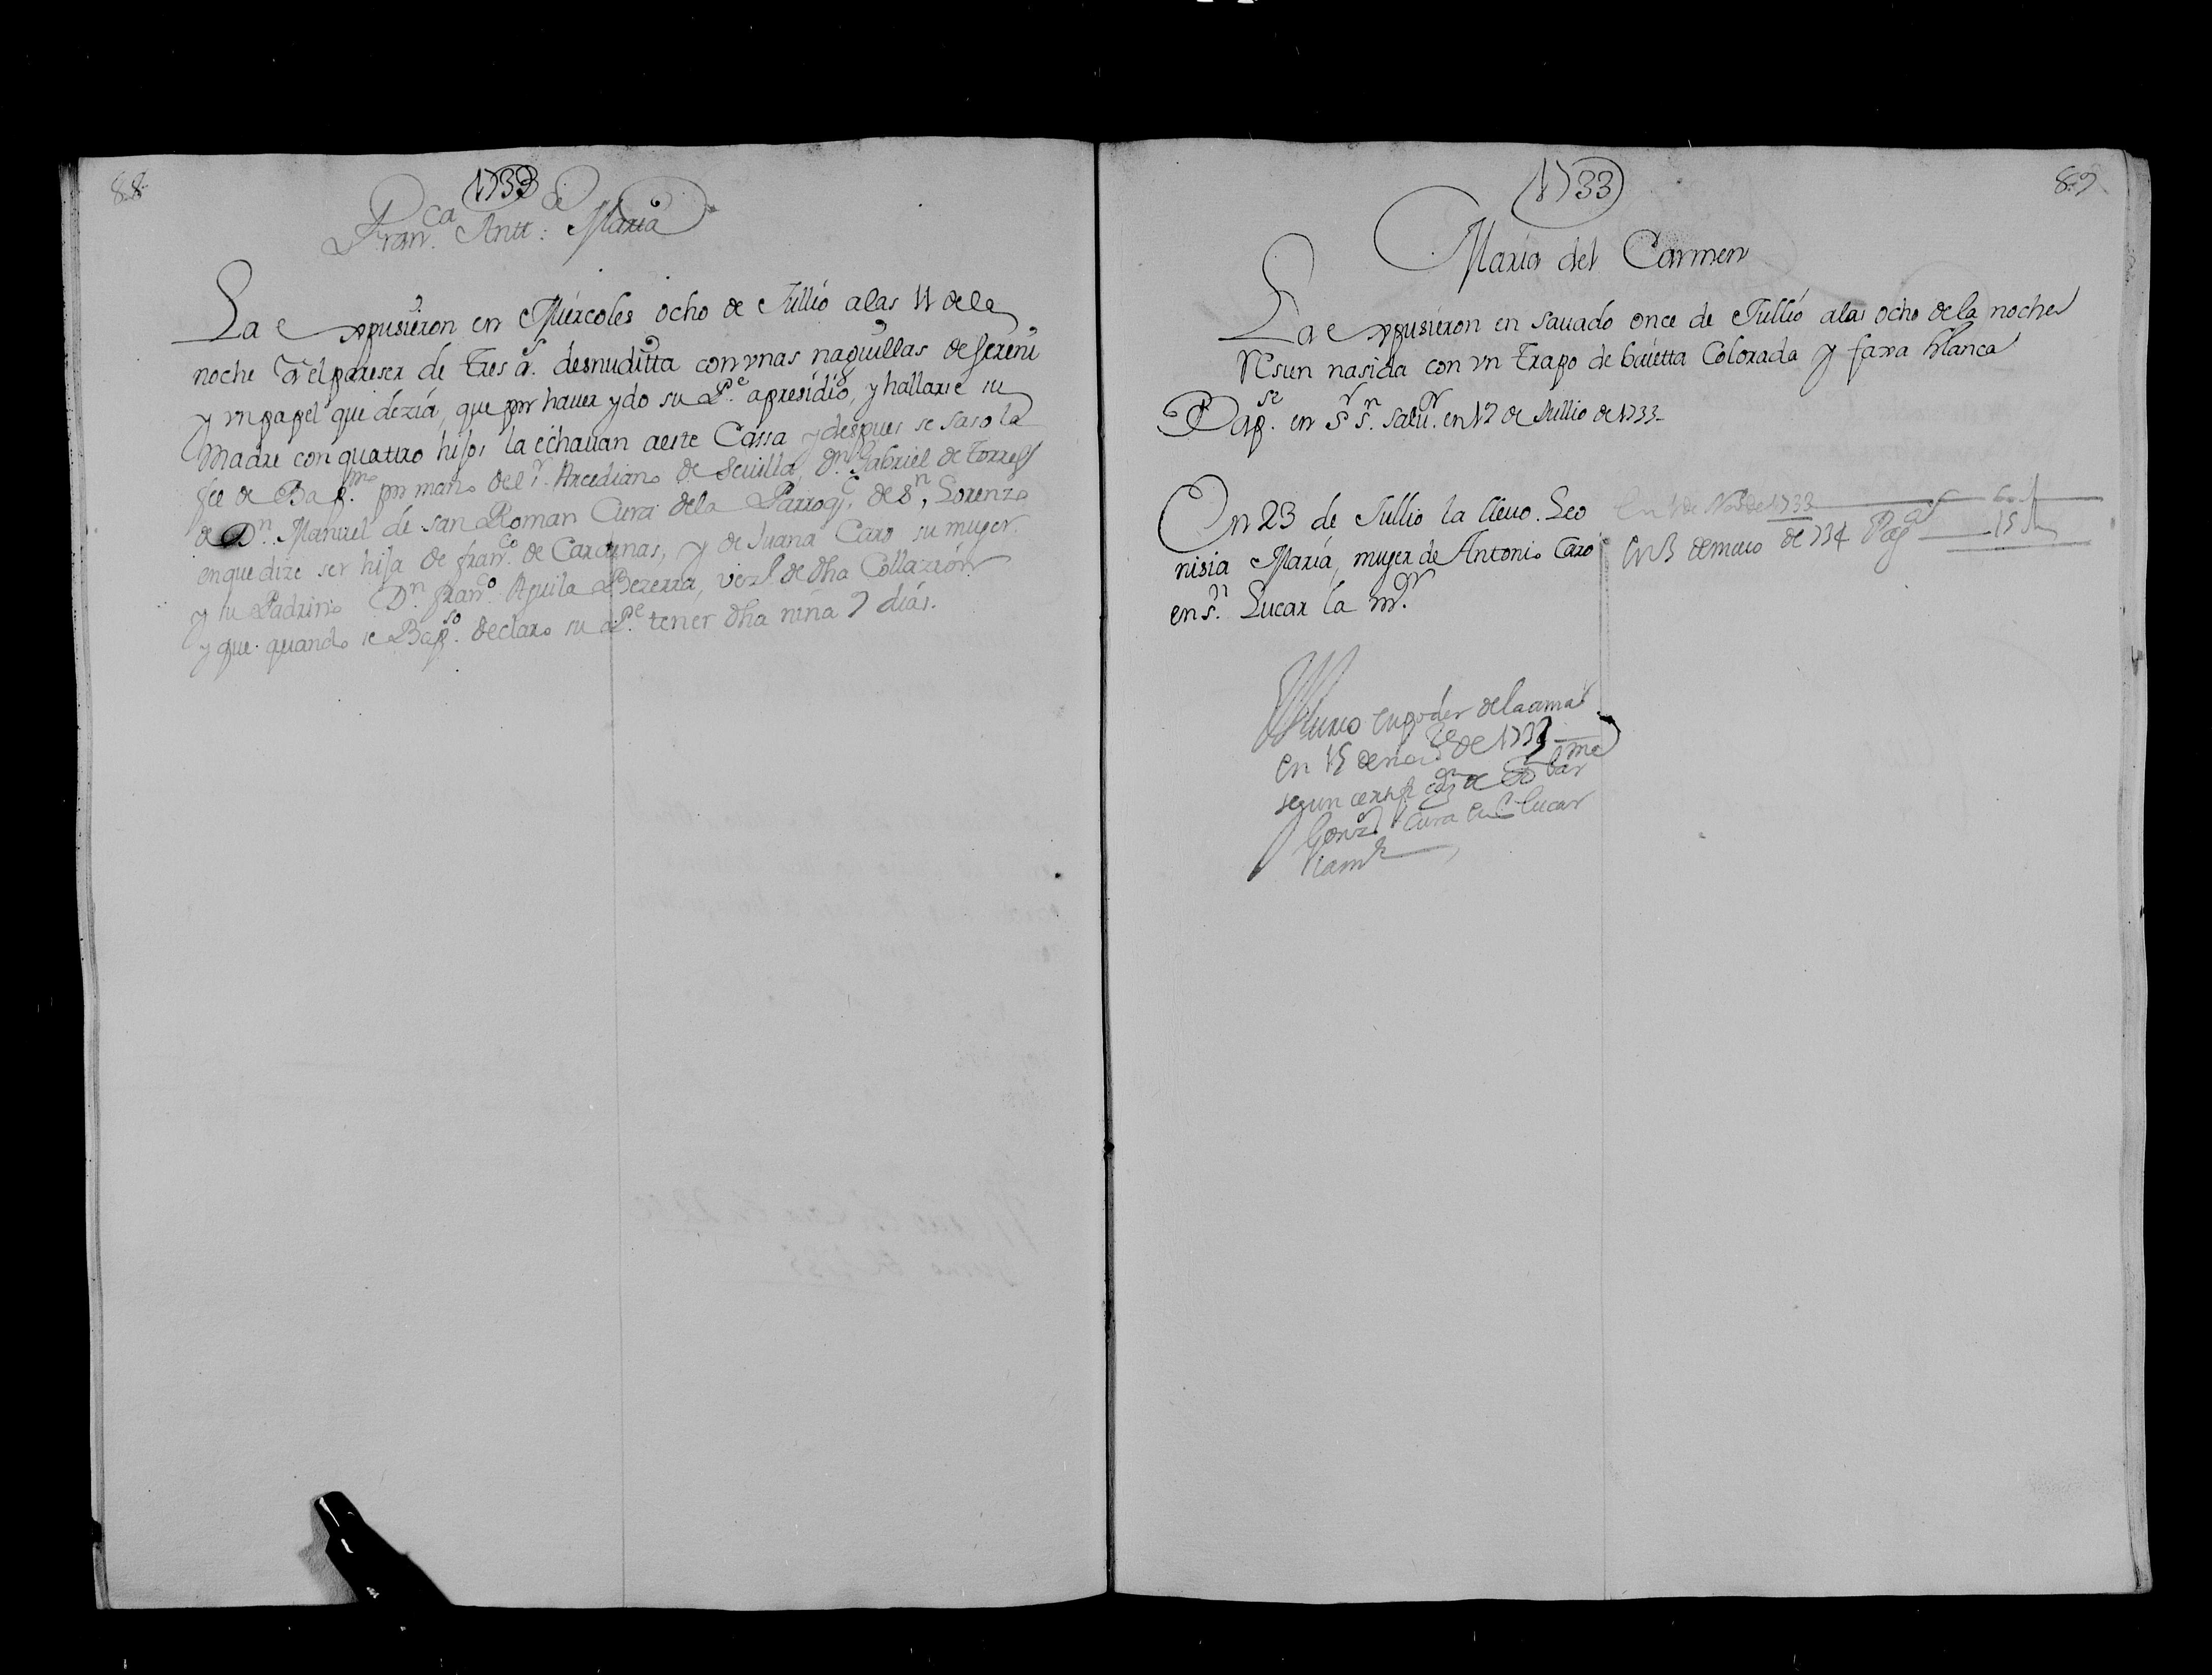 88
1733
Fran.ca Antt: de Maria
La expusieron en Miercoles ocho de Jullio a las 11 de la
noche a el pareser de tres a.s desnuditta con vnas naguillas de sereni
y vn papel que dezia, que por hauer ydo su P.e a presidio, y hallarse su
Madre con quattro hijos la echauan a este Cassa y despues se saso la
fee de Bap.mo por mano del s.r Arcediano de Seuilla, D.n Gabriel de Torres
de D.n Manuel de san Roman Cura de la Parroq.a de S.n Lorenzo
en que dize ser hija de fran.co de Cardenas, y de Juana Caro su muger.
y su Padrino D.n fran.co Aguila Bezerra, vez.o de dha Collazion
y que quando se Bap.so declaro su P.e tener dha niña 9 dias.
89
1733
Maria del Carmen
La expusieron en sauado once de Jullio a las ocho de la noche
Resien nasida con vn trapo de baietta Colorada y faxa blanca
Bap.se en S.r S.n Salu.r en 12 de Jullio de 1733
En 23 de Jullio la lleuo. Leo
nisia Maria, muger de Antonio Caro
en S.n Lucar la m.or
En 1 de Nou.e de 1733 60 r
en 3 de marzo de 734 Pag.e 15 r
Murio en poder de la ama
en 15 de de 1733
segun certificaz.on de
Gonz.s Cura en S. Lucar
la m.r